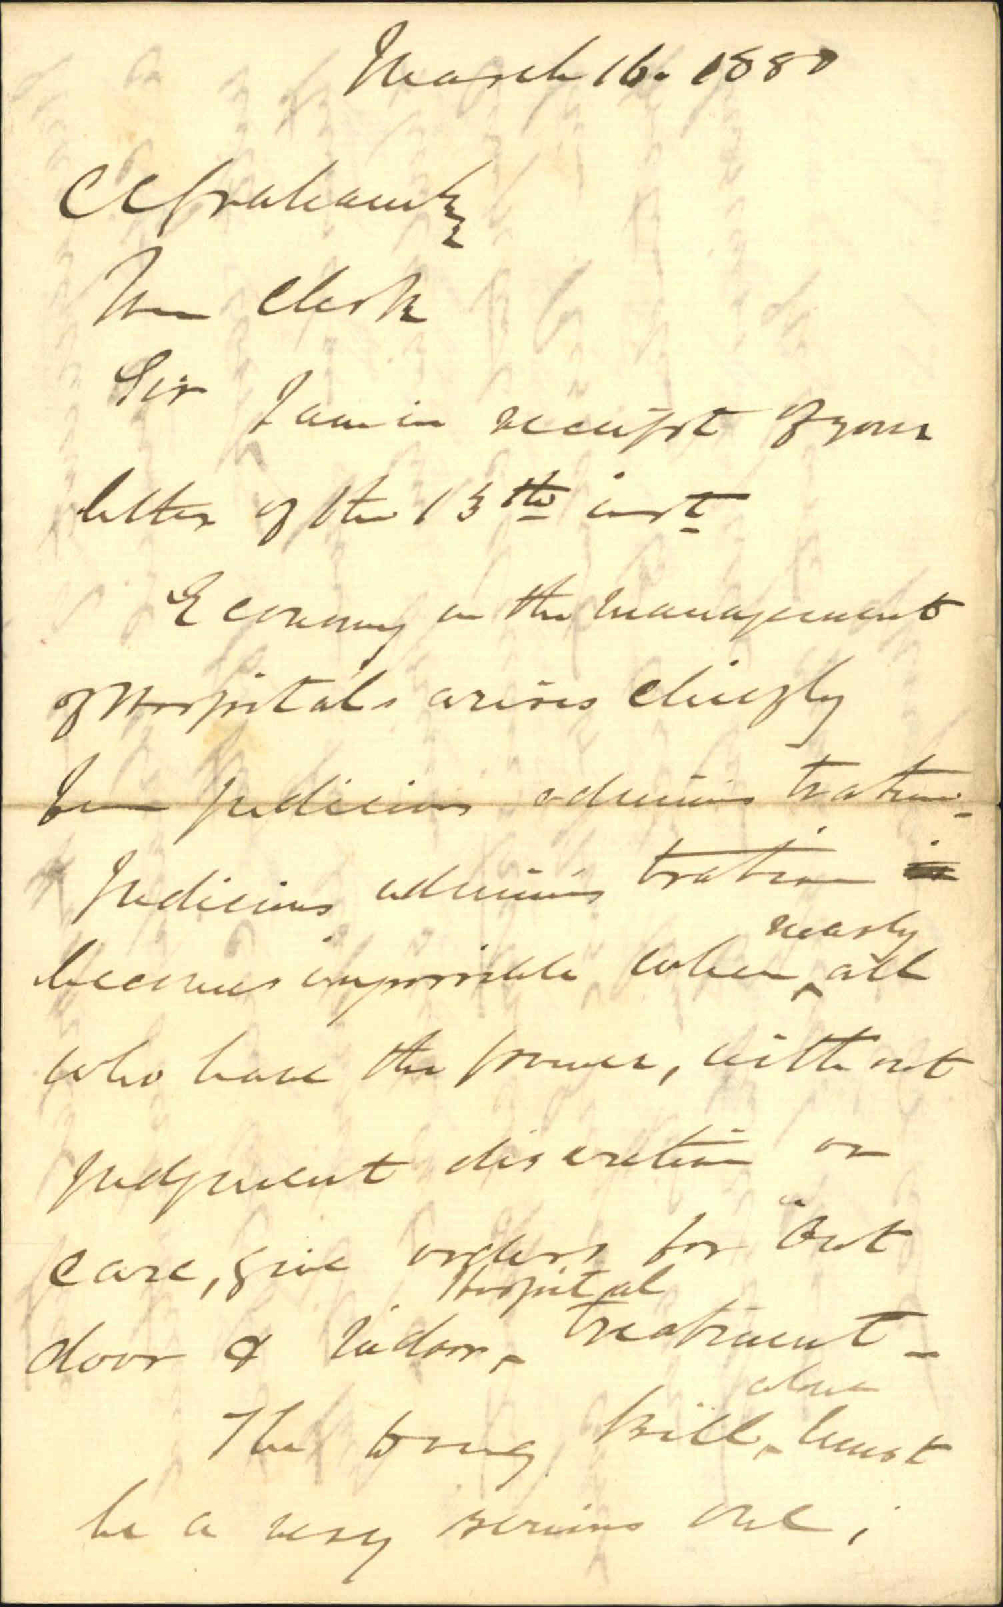 March 16. 1880
C C Graham Esq
Town Clerk
Sir I am in receipt of your
letter of the 13th inst
Economy in the management
of Hospitals arises chiefly
from judicious administration -
Judicious administration is
nearly
becomes impossible when ^ all
who have the power, without
judgment discretion or
care, give orders for "Out
Hospital
door & Indoor ^ treatment -
alone
The Drug Bill ^ must
be a very serious one,